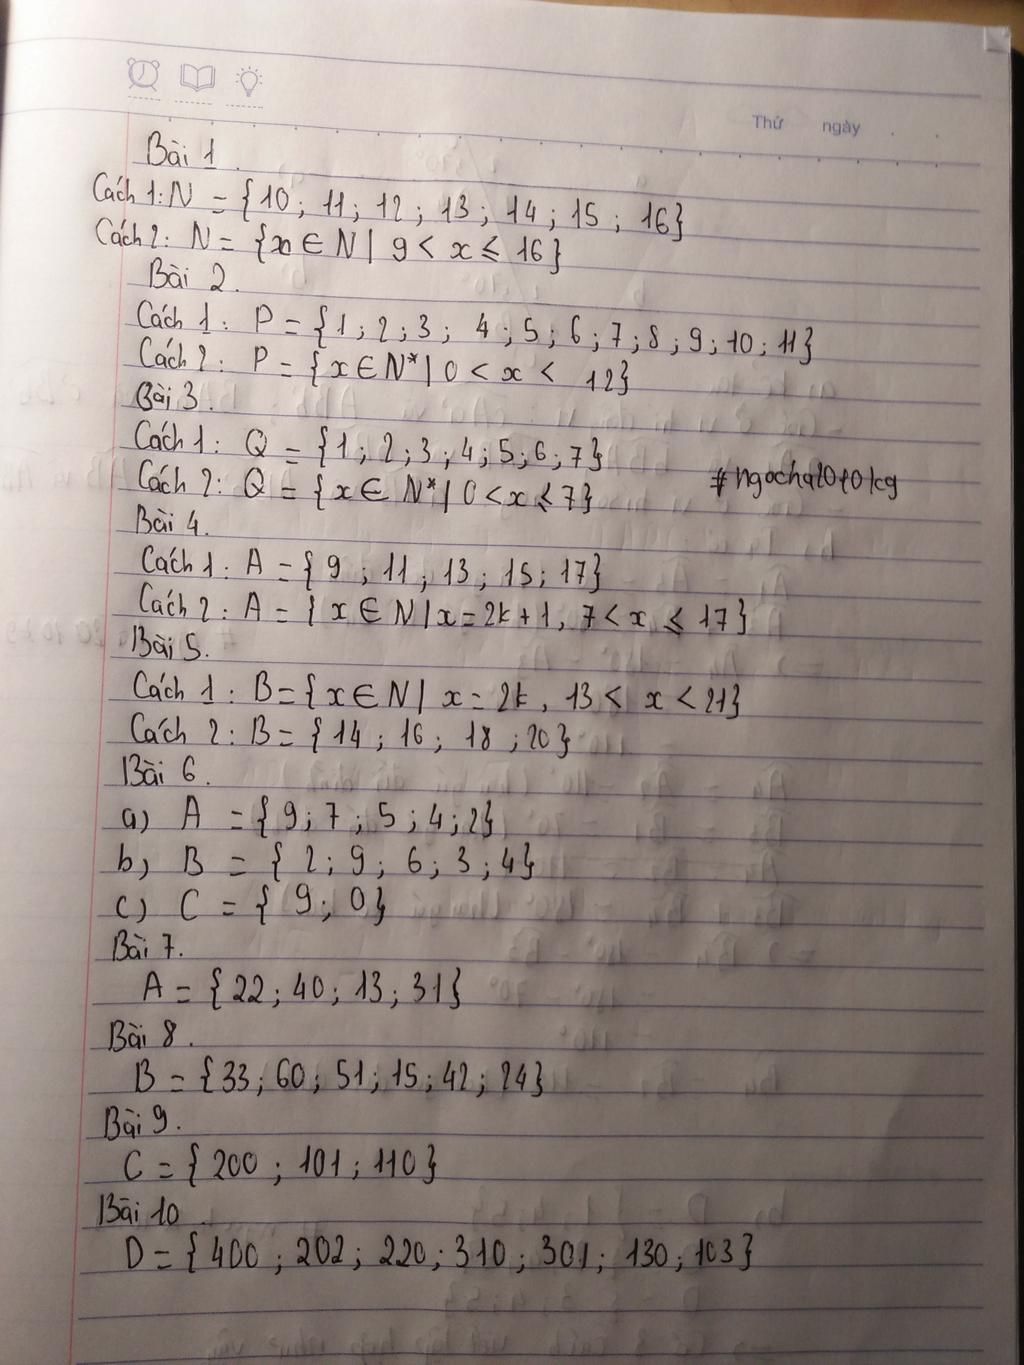 Thứ ngày
Bài 1.
Cách 1: N = {10; 11; 12; 13; 14; 15; 16}
Cách 2: N = {x ∈ N | 9 < x ⩽ 16}
Bài 2.
Cách 1: P = {1; 2; 3; 4; 5; 6; 7; 8; 9; 10; 11}
Cách 2: P = {x ∈ N* | 0 < x < 12}
Bài 3.
Cách 1: Q = {1; 2; 3; 4; 5; 6; 7}
Cách 2: Q = {x ∈ N* | 0 < x ⩽ 7}
Bài 4.
Cách 1: A = {9; 11; 13; 15; 17}
Cách 2: A = {x ∈ N | x = 2k + 1, 7 < x ⩽ 17}
Bài 5.
Cách 1: B = {x ∈ N | x = 2k, 13 < x < 21}
Cách 2: B = {14; 16; 18; 20}
Bài 6.
a) A = {9; 7; 5; 4; 2}
b) B = {2; 9; 6; 3; 4}
c) C = {9; 0}
Bài 7.
A = {22; 40; 13; 31}
Bài 8.
B = {33; 60; 51; 15; 42; 24}
Bài 9.
C = {200; 101; 110}
Bài 10
D = {400; 202; 220; 310; 301; 130; 103}